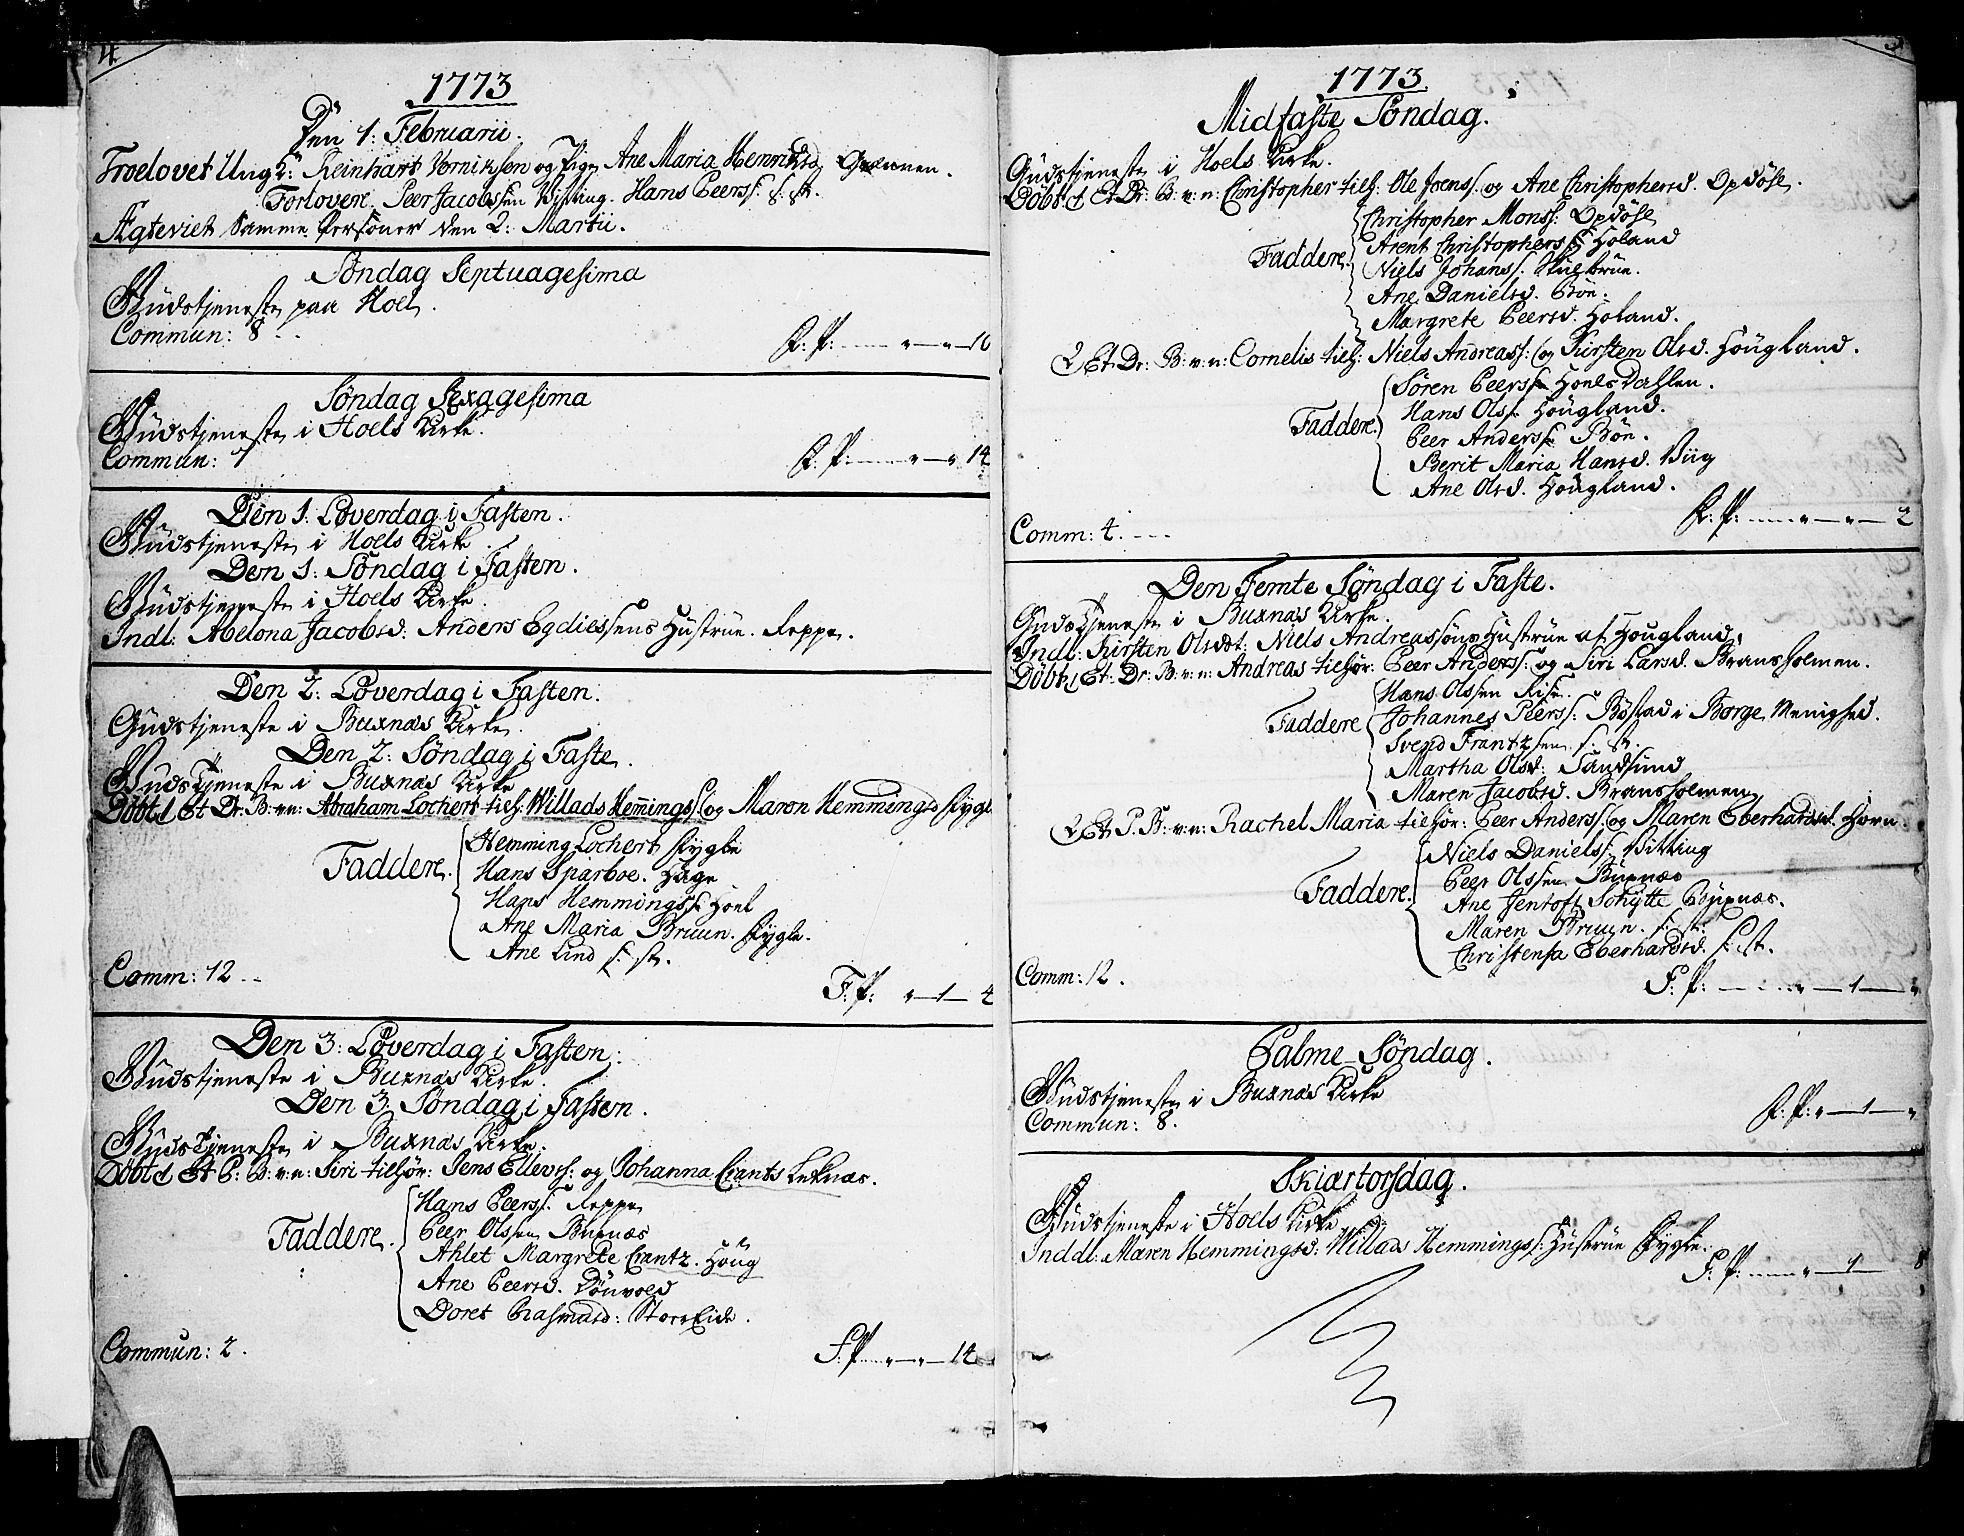 4
1773
Den 1: Februarii.
Troelovet Ung K: Reinhart Vorniksen og Pige Ane Maria Hemmisd
Forlovere. Peer Jacobssen Vitting. Hans Peerss: s: st.
Ægteviet Samme Personer den 2: Martii.
Søndag Septuagesima
Gudstjeneste paa Hoel.
Commun: 8
F: P: 16
Søndag Sexagesima
Gudstjeneste i Hoels Kirke.
Commun: 7
F: P: 14
Den 1: Løverdag i Fasten.
Gudstjeneste i Hoels Kirke
Den 1: Søndag i Fasten.
Gudstjeneste i Hoels Kirke.
Indl: Abelona Jacobsd: Anders Egdiessens Hustrue. Reppe.
Den 2: Løverdag i Fasten.
Gudstjeneste i Buxnæs Kirke.
Den 2: Søndag i Faste.
Gudstjeneste i Buxnæs Kirke
Døbt 1 Et Dr: B: v: n: Abraham Lochert tilh: Willads Hemmings: og Maren Hemmingsd Rygle
Faddere.
Hemming Lochert Rygle
Hans Sparboe. Hage
Hans Hemmingss: Hoel
Ane Maria Bruun. Rygle.
Ane Lind s: st.
Comm: 12
F: P: 1 4
Den 3: Løverdag i Fasten:
Gudstjeneste i Buxnæs Kirke.
Den 3: Søndag i Fasten.
Gudstjeneste i Buxnæs Kirke.
Døbt 1 Et P: B: v: n: Siri tilhør: Jens Ellevss: og Johanna Crants Leknæs.
Faddere.
Hans Peerss: Reppe
Peer Olssen Buxnæs
Ahlet Margrete Crantz. Houg
Ane Peersd. Lönvold
Doret Rasmusd: StorrEide.
Commun: 2.
F: P: 14
1773.
Midfaste Søndag.
Gudstjeneste i Hoels Kirke.
Døbt 1 Et Dr: B: v: n: Christopher tilh: Ole Joenss: og Ane Christophersd. Opdøhl.
Faddere.
Christopher Monss: Opdøhl
Arent Christopherss: Holand
Niels Johanss: Skulbrue.
Ane Danielsd. Bøe.
Margrete Peersd. Holand.
2 Et Dr: B: v: n: Cornelis tilh: Niels Andreass: og Kirsten Olsd. Hougland.
Faddere.
Søren Peerss: Hoelsdahlen.
Hans Olss: Hougland.
Peer Anderss: Bøe.
Berit Maria Hansd. Viig
Ane Olsd. Hougland.
Comm: 4.
F: P: 2
Den Femte Søndag i Faste.
Gudstjeneste i Buxnæs Kirke.
Indl: Kirsten Olsdt: Niels Andreassøns Hustrue af Hougland.
Døbt 1 Et Dr: B: v: n: Andreas tilhør: Peer Anderss: og Siri Larsd. Bransholmen.
Faddere
Hans Olssen Rise.
Johannes Peerss: Bøstad i Borge Menighed.
Svend Frantzsen s: st.
Martha Olsd: Sandsund
Maren Jacobsd. Bransholmen.
2 Et P. B: v: n: Rachel Maria tilhør: Peer Anderss: og Maren Eberhardsd. Horn
Faddere.
Niels Danielss: Vitting
Peer Olssen Buxnæs
Ane Jentoft Schytte Buxnæs.
Maren Bruun. s: st:
Christensa Eberhardsd. s: st.
Comm: 12.
F: P: 1
Palme-Søndag.
Gudstjeneste i Buxnæs Kirke
Commun: 8.
F: P: 1
Skiærtorsdag.
Gudstjeneste i Hoels Kirke
Inddl: Maren Hemmingsd: Willads Hemmingss: Hustrue Rygle.
F: P: 1 8